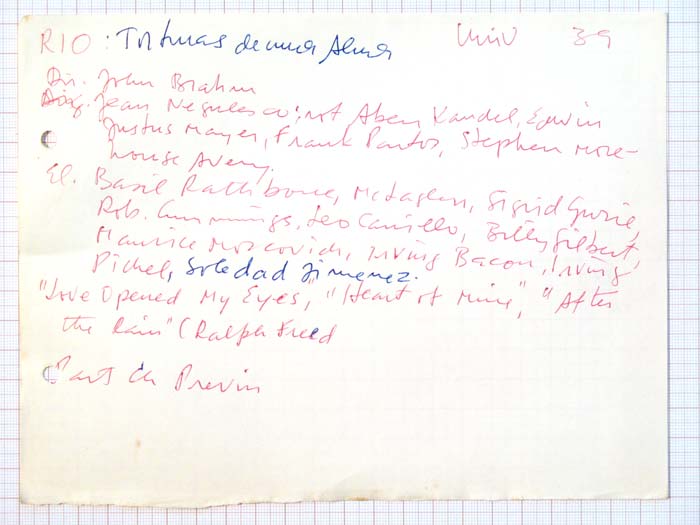 RIO: Torturas de una Alma Univ 39
Dir. John Brahm
Arg. Jean Negulesco; not Aben Kandel, Edwin
Justus Mayer, Frank Partos, Stephen More-
house Avery.
El. Basil Rathbone, McLaglen, Sigrid Gurie,
Rob. Cummings, Leo Carrillo, Billy Gilbert,
Maurice Moscovich, Irving Bacon, Irving
Pichel, Soledad Jimenez.
"Love Opened My Eyes", "Heart of Mine", "After
the Rain" (Ralph Freed
Part Ch Previn